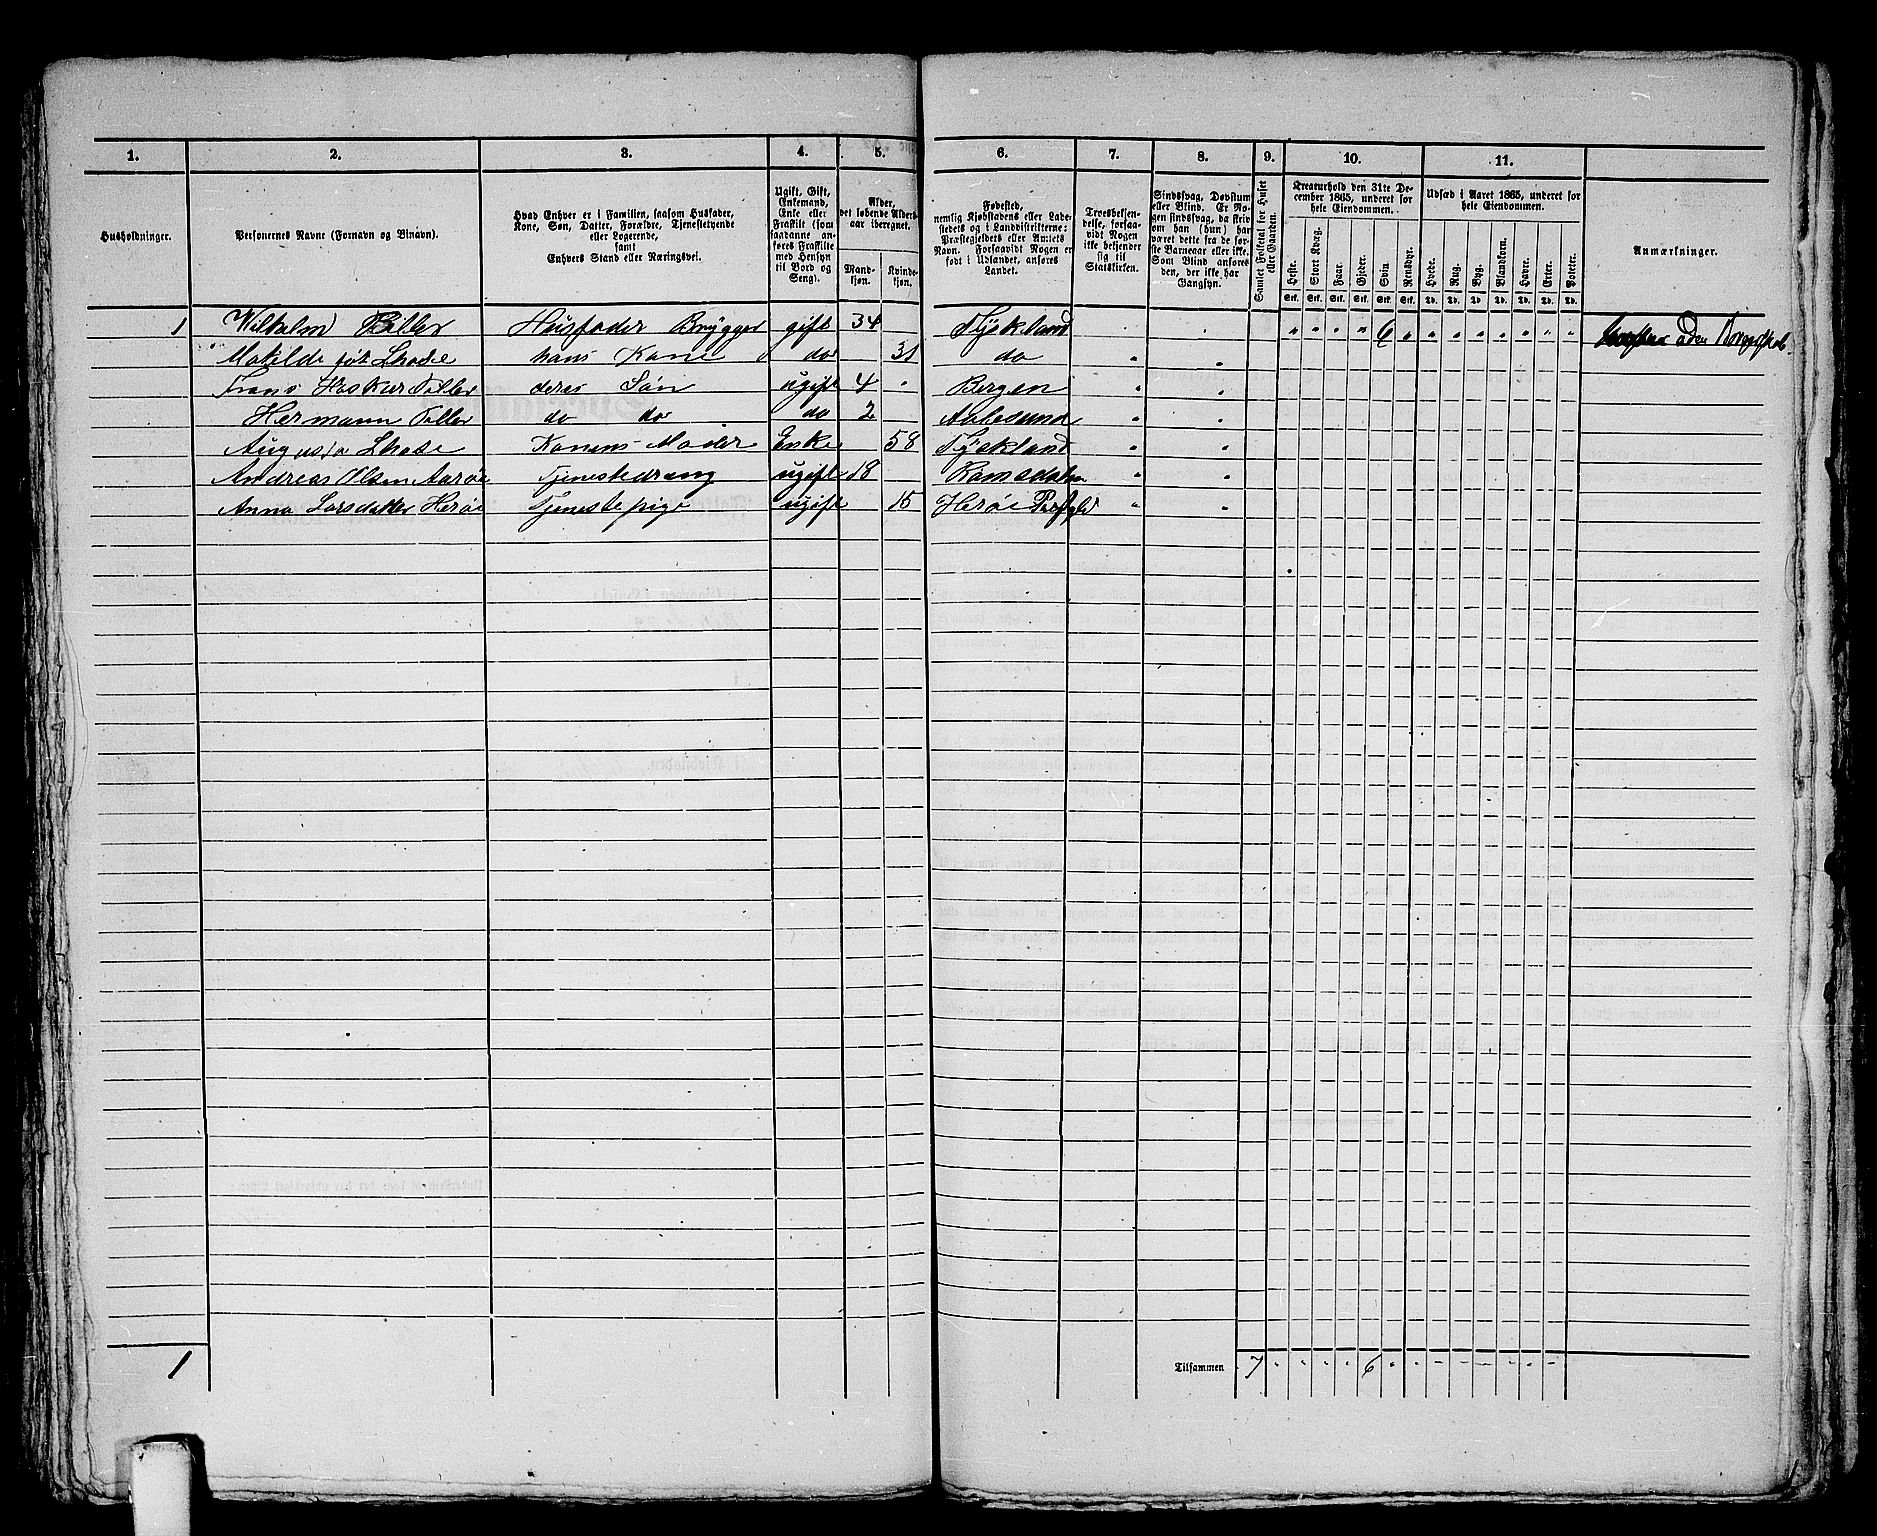 1. 2. 3. 4. 5. 6. 7. 8. 9. 10. 11.
Husholdninger.
Personernes Navne (Fornavn og Binavn).
Hvad Enhver er i Familien, saasom Husfader,
Kone, Søn, Datter, Forældre, Tjenestetyende
eller Logerende,
samt
Enhvers Stand eller Næringsvei.
Ugift, Gift,
Enkemand,
Enke eller
Fraskilt (som
saadanne an-
føres Fraskilte
med Hensyn
til Bord og
Seng).
Alder,
det løbende Alders-
aar iberegnet.
Mand-
kjøn.
Kvinde-
kjøn.
Fødested,
nemlig Kjøbstadens eller Lade-
stedets og i Landdistrikterne:
Præstegjeldets eller Amtets
Navn. Forsaavidt Nogen er
født i Udlandet, anføres
Landet.
Troesbekjen-
delse, forsaa-
vidt Nogen
ikke bekjender
sig til
Statskirken.
Sindssvag, Døvstum
eller Blind. Er No-
gen sindssvag, da skriv
om han (hun) har
været dette fra de før-
ste Barneaar eller ikke.
Som Blind anføres
den, der ikke har
Gangsyn.
Samlet Folketal for Huset
eller Gaarden.
Kreaturhold den 31te De-
cember 1865, underet for
hele Eiendommen.
Heste. Stort Kvæg. Faar. Gjeder. Svin. Rensdyr.
Stk. Stk. Stk. Stk. Stk. Stk.
Udsæd i Aaret 1865, underet for
hele Eiendommen.
Hvede. Rug. Byg. Blandkorn. Havre. Erter. Poteter.
Td. Td. Td. Td. Td. Td. Td.
Anmærkninger.
1 Wilhelm Biller Husfader Brygger gift 34 Tyskland " " " " 6 " " " " " " " "
Matilde föt Shade hans Kone do 31 do "
Frans Hasker Filler deres Søn ugift 4 " Bergen "
Hermann Filler do do do 2 Aalesund "
Augusta Shade Konens Moder Enke 58 Tyskland "
Andreas Olsen Aarøe Tjenestedreng ugift 18 Romsdalen "
Anna Larsdatter Herøe Tjenestepige ugift 15 Herøe Prestgld "
1 Tilsammen 7 " " " " 6 " " " " " " " "